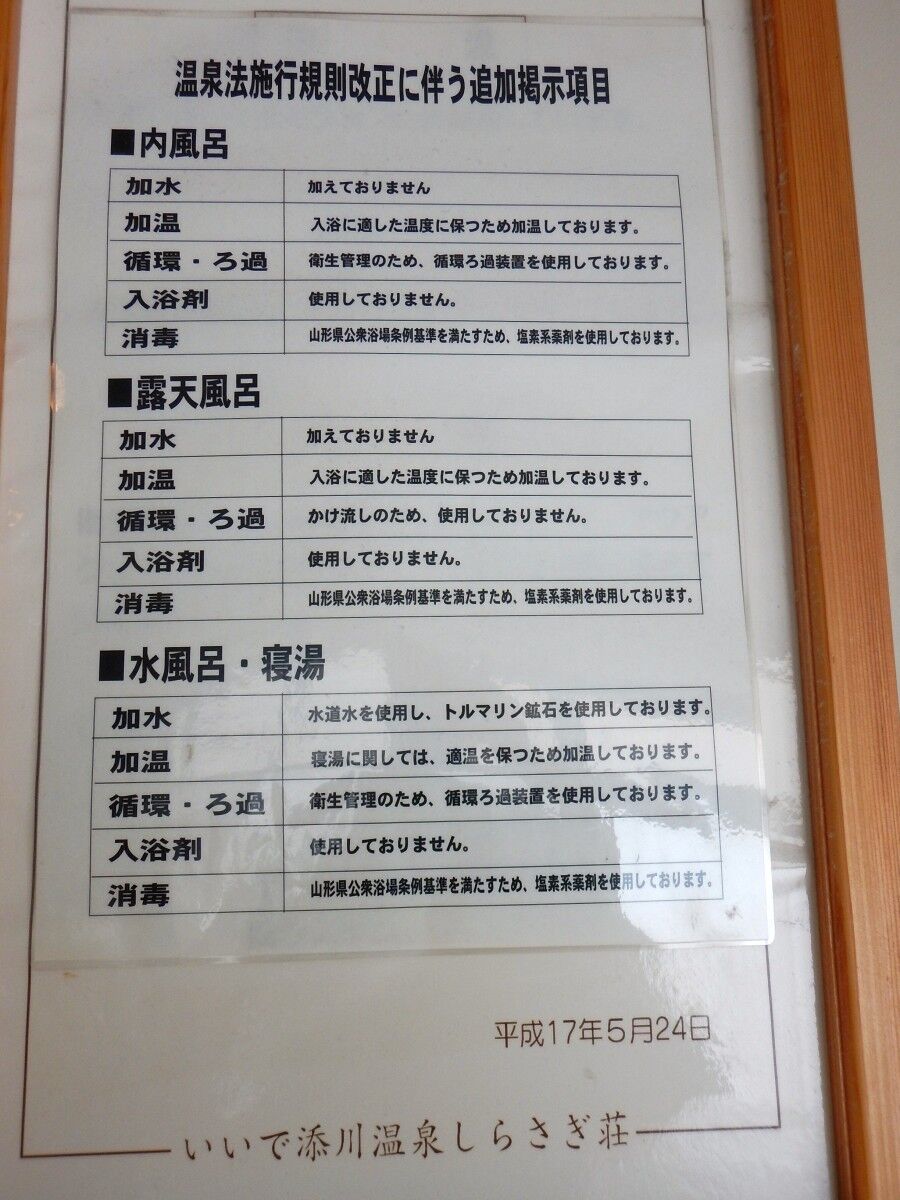 温泉法施行規則改正に伴う追加掲示項目
■内風呂
加水 加えておりません
加温 入浴に適した温度に保つため加温しております。
循環・ろ過 衛生管理のため、循環ろ過装置を使用しております。
入浴剤 使用しておりません。
消毒 山形県公衆浴場条例基準を満たすため、塩素系薬剤を使用しております。
■露天風呂
加水 加えておりません
加温 入浴に適した温度に保つため加温しております。
循環・ろ過 かけ流しのため、使用しておりません。
入浴剤 使用しておりません。
消毒 山形県公衆浴場条例基準を満たすため、塩素系薬剤を使用しております。
■水風呂・寝湯
加水 水道水を使用し、トルマリン鉱石を使用しております。
加温 寝湯に関しては、適温を保つため加温しております。
循環・ろ過 衛生管理のため、循環ろ過装置を使用しております。
入浴剤 使用しておりません。
消毒 山形県公衆浴場条例基準を満たすため、塩素系薬剤を使用しております。
平成17年5月24日
いいで添川温泉しらさぎ荘